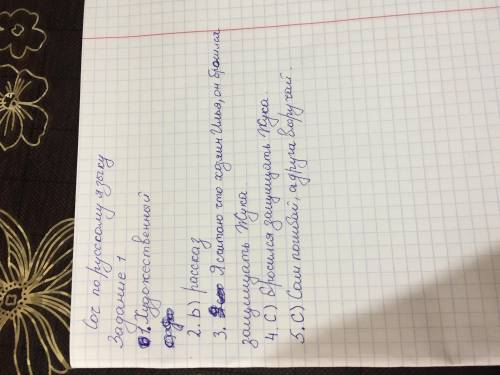 Соч по русскому языку
Задание 1
1. Художественный
2. b) рассказ
3. Я считаю что хозяин Илья, он бросился
защищать Жука
4. С) Бросился защищать Жука.
5. С) Сам погибай, а друга выручай.